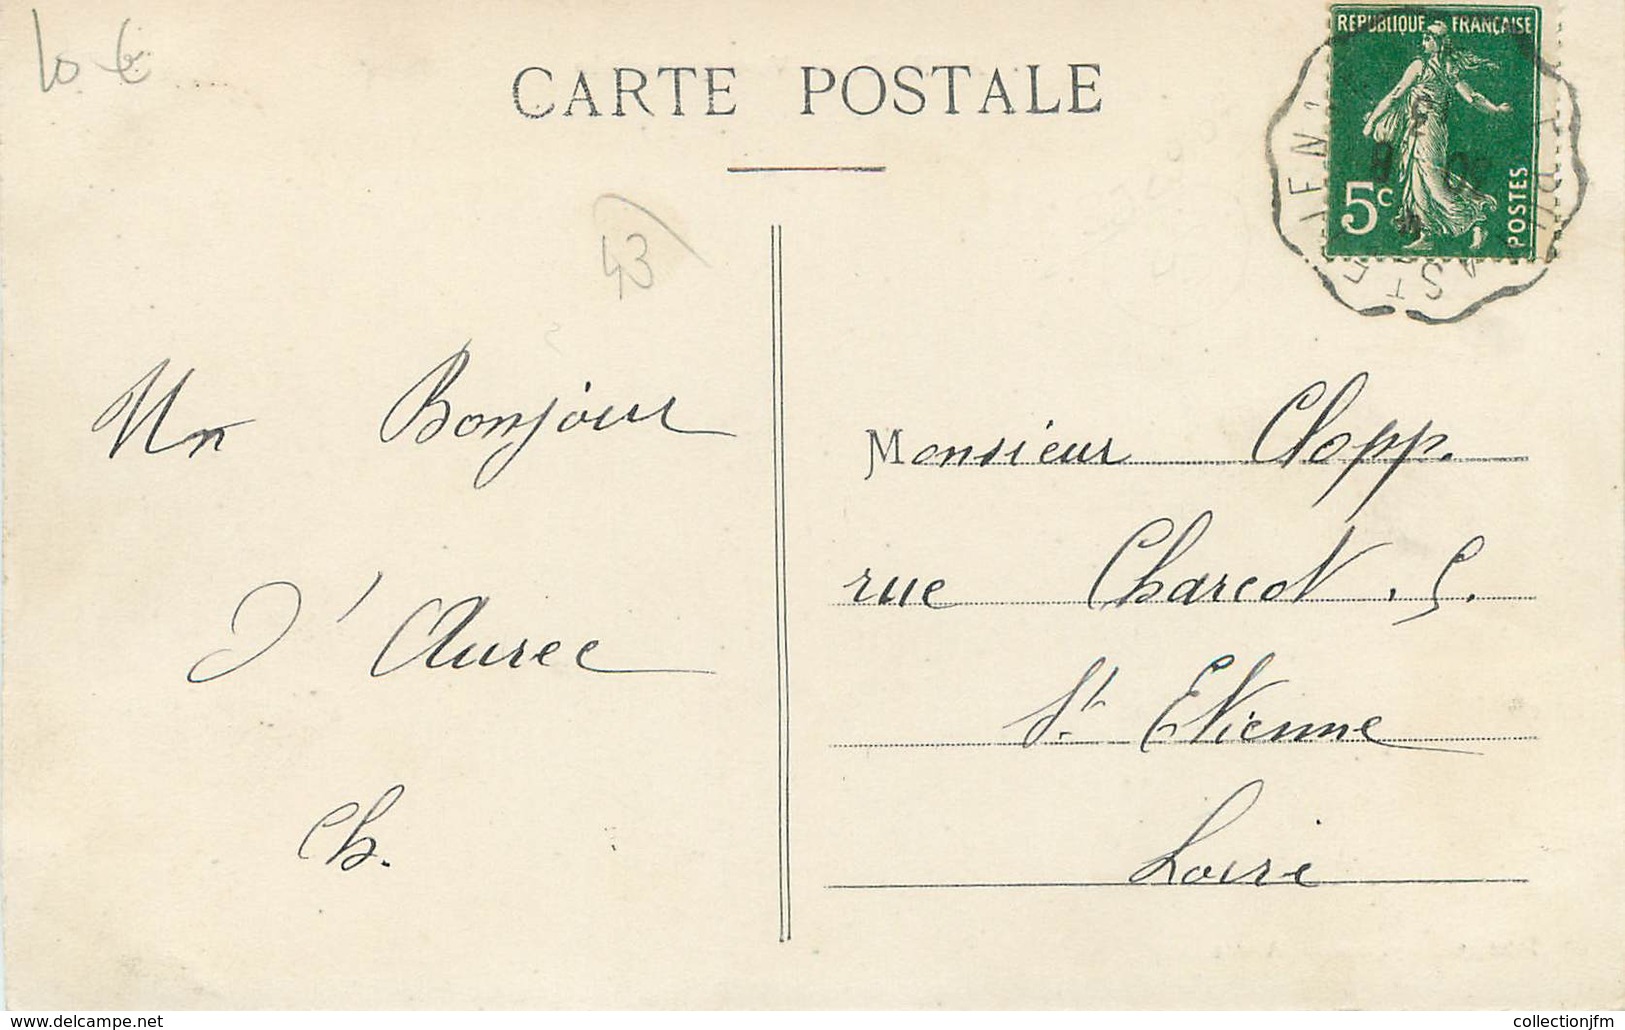 10 €
CARTE POSTALE
REPUBLIQUE FRANÇAISE
5c
POSTES
43
Un Bonjour
D'Aurec
Ch.
Monsieur Clopp.
rue Charcot . 5.
St. Etienne
Loire
www.delcampe.net
collectionjfm